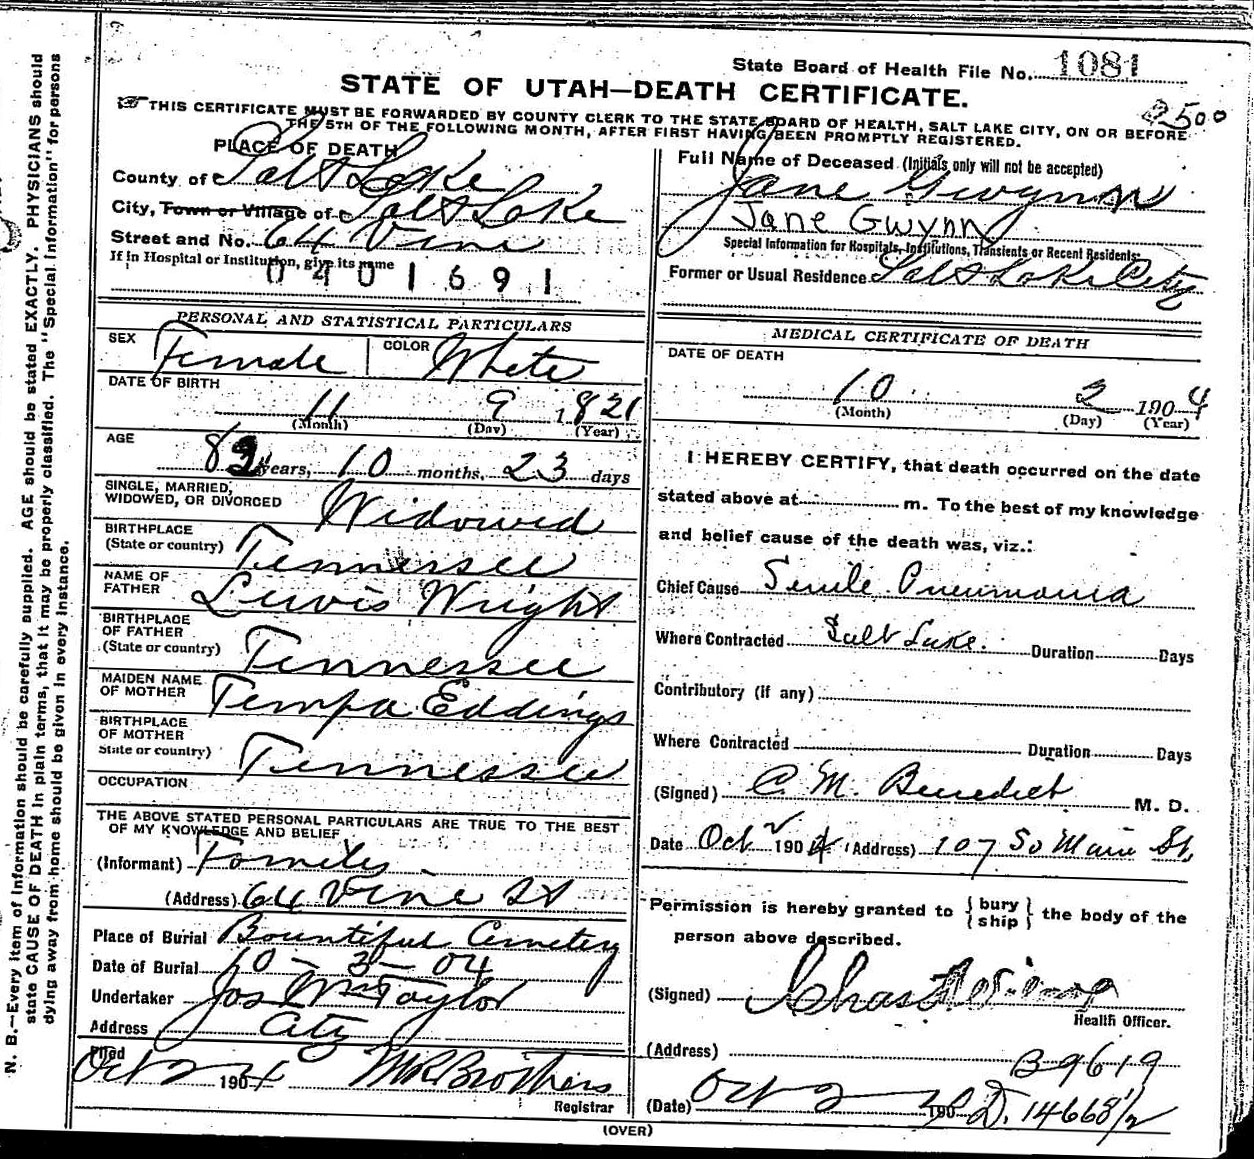 State Board of Health File No. 1081
STATE OF UTAH—DEATH CERTIFICATE.
2500
THIS CERTIFICATE MUST BE FORWARDED BY COUNTY CLERK TO THE STATE BOARD OF HEALTH, SALT LAKE CITY, ON OR BEFORE
THE 5TH OF THE FOLLOWING MONTH, AFTER FIRST HAVING BEEN PROMPTLY REGISTERED.
PLACE OF DEATH
County of Salt Lake
City, Town or Village of Salt Lake
Street and No. 64 Vine
If in Hospital or Institution, give its name
0401691
Full Name of Deceased (Initials only will not be accepted)
Jane Gwynn
Jane Gwynn
Special Information for Hospitals, Institutions, Transients or Recent Residents:
Former or Usual Residence Salt Lake City
PERSONAL AND STATISTICAL PARTICULARS
SEX Female COLOR White
DATE OF BIRTH
11 9 1821
(Month) (Day) (Year)
AGE
82 years, 10 months, 23 days
SINGLE, MARRIED,
WIDOWED, OR DIVORCED Widowed
BIRTHPLACE
(State or country) Tennessee
NAME OF
FATHER Lewis Wright
BIRTHPLACE
OF FATHER
(State or country) Tennessee
MAIDEN NAME
OF MOTHER Tempa Eddings
BIRTHPLACE
OF MOTHER
State or country) Tennessee
OCCUPATION
THE ABOVE STATED PERSONAL PARTICULARS ARE TRUE TO THE BEST
OF MY KNOWLEDGE AND BELIEF
(Informant) Family
(Address) 64 Vine St
Place of Burial Bountiful Cemetery
Date of Burial 10-3-04
Undertaker Jos Wm Taylor
Address City
Filed
Oct 2 1904 MR Brothers
Registrar
MEDICAL CERTIFICATE OF DEATH
DATE OF DEATH
10 2 1904
(Month) (Day) (Year)
I HEREBY CERTIFY, that death occurred on the date
stated above at m. To the best of my knowledge
and belief cause of the death was, viz.:
Chief Cause Senile Pneumonia
Where Contracted Salt Lake. Duration Days
Contributory (if any)
Where Contracted Duration Days
(Signed) C M. Benedict M. D.
Date Oct 2 1904 (Address) 107 So Main St.
Permission is hereby granted to { bury
ship } the body of the
person above described.
(Signed) Chas
Health Officer.
(Address)
B9619
(Date) Oct 2 190 D. 14668 1/2
(OVER)
N. B.—Every item of information should be carefully supplied. AGE should be stated EXACTLY. PHYSICIANS should
state CAUSE OF DEATH in plain terms, that it may be properly classified. The "Special Information" for persons
dying away from home should be given in every instance.